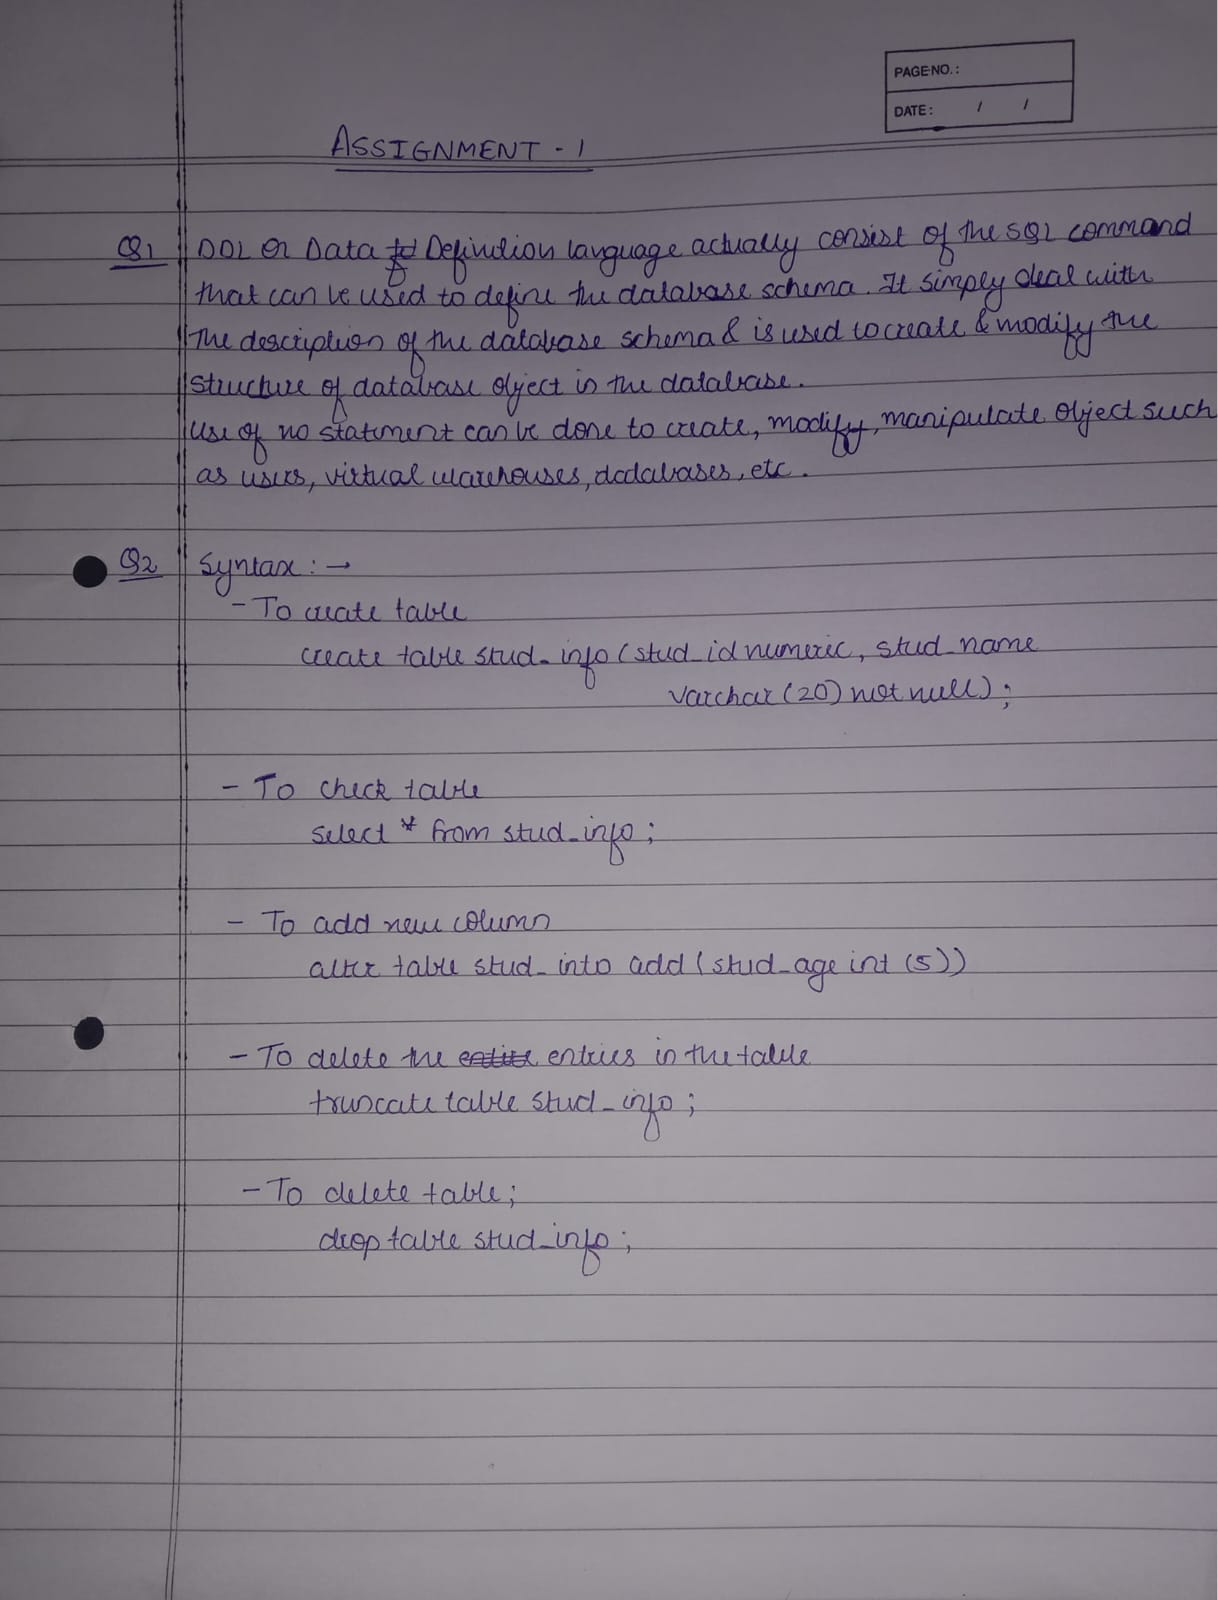 PAGE NO.:
DATE: / /
ASSIGNMENT - 1
Q1 DDL or Data Definition language actually consist of the SQL command
that can be used to define the database schema. It simply deal with
the description of the database schema & is used to create & modify the
structure of database object in the database.
Use of no statement can be done to create, modify, manipulate object such
as users, virtual warehouses, dadabases, etc.
Q2 Syntax : →
- To create table
create table stud_info (stud_id numeric, stud_name
varchar (20) not null);
- To check table
select * from stud_info;
- To add new column
alter table stud_into add (stud_age int (5))
- To delete the entire entries in the table
truncate table stud_info;
- To delete table;
drop table stud_info;